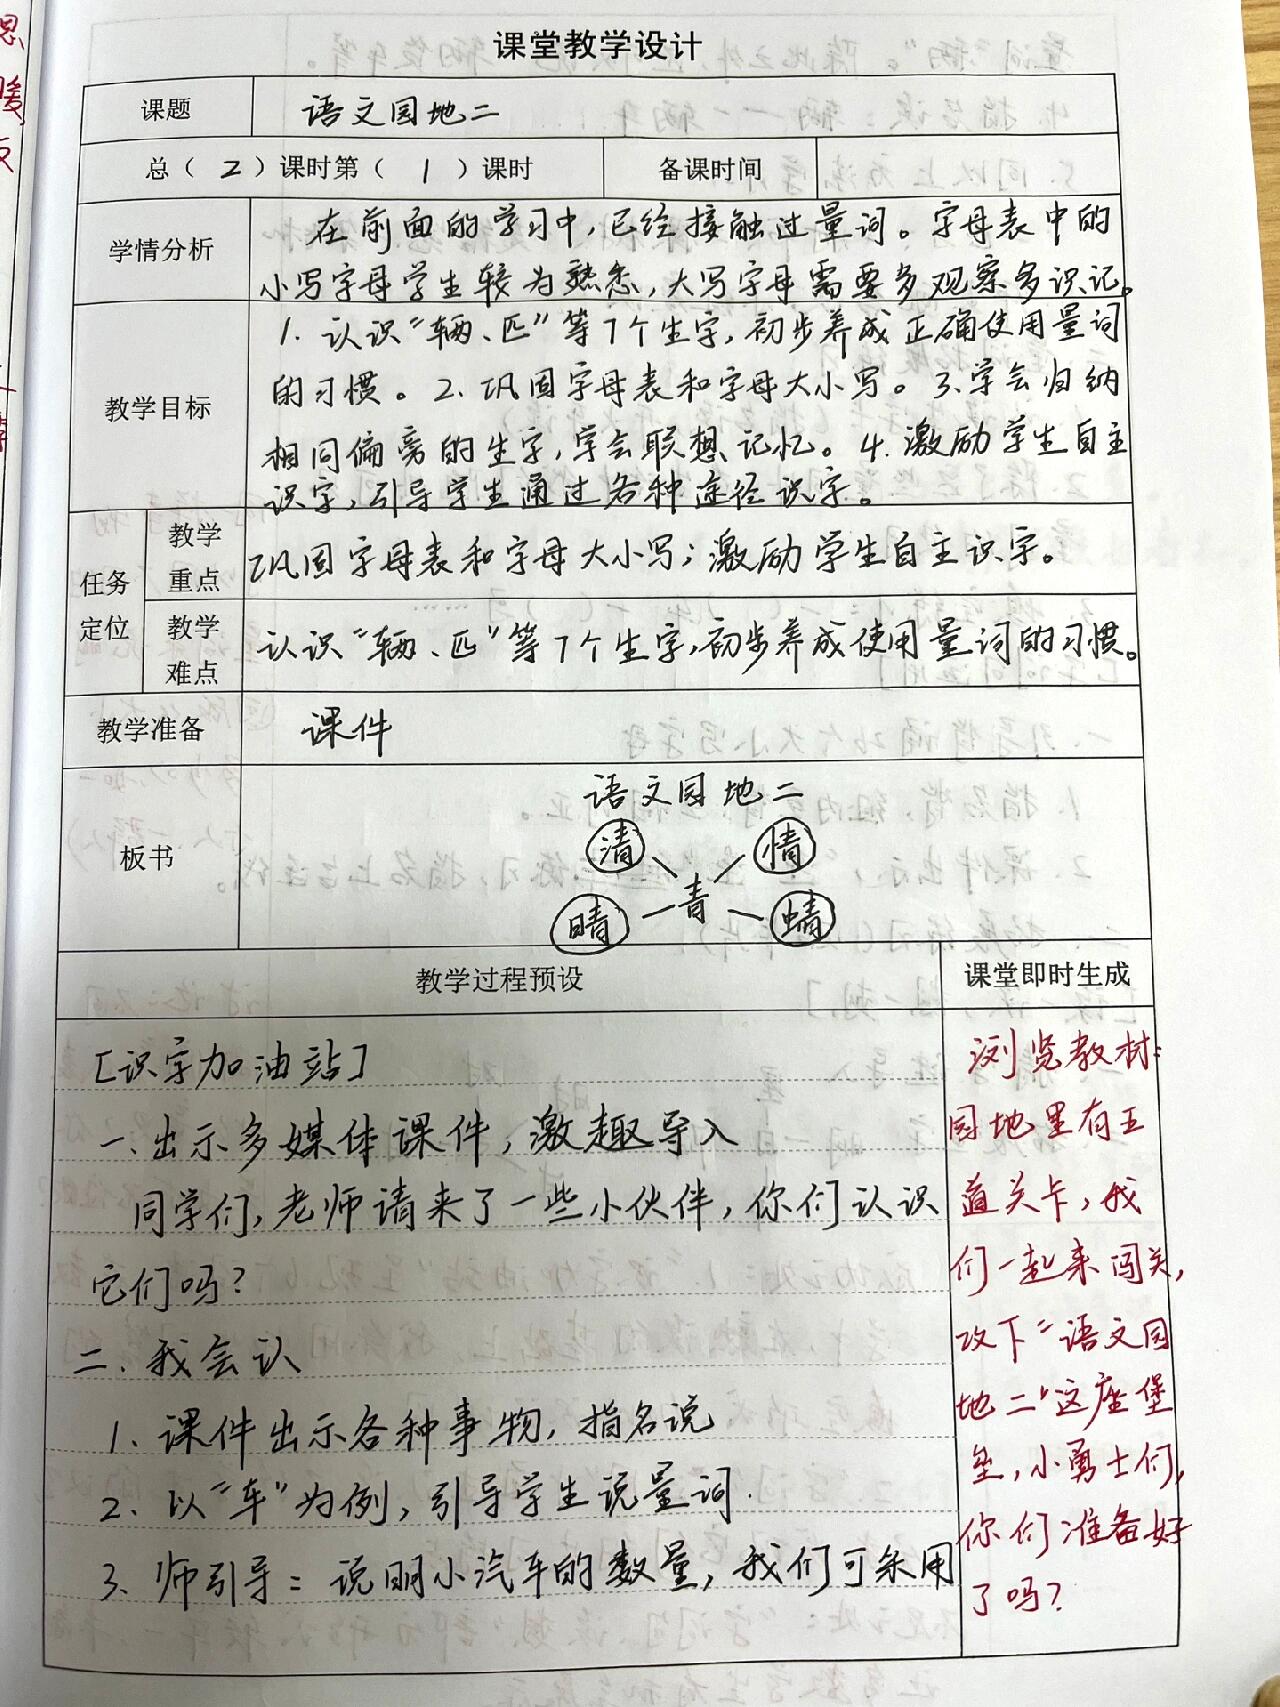 课堂教学设计
课题 语文园地二
总（2）课时第（1）课时 备课时间
学情分析
在前面的学习中，已经接触过量词。字母表中的
小写字母学生较为熟悉，大写字母需要多观察多识记。
教学目标
1. 认识“辆、匹”等7个生字，初步养成正确使用量词
的习惯。2. 巩固字母表和字母大小写。3.学会归纳
相同偏旁的生字，学会联想记忆。4.激励学生自主
识字，引导学生通过各种途径识字。
任务
定位
教学
重点
巩固字母表和字母大小写；激励学生自主识字。
教学
难点
认识“辆、匹”等7个生字，初步养成使用量词的习惯。
教学准备 课件
板书
语文园地二
清 情
青
晴 蜻
教学过程预设 课堂即时生成
[识字加油站]
一. 出示多媒体课件，激趣导入
同学们，老师请来了一些小伙伴，你们认识
它们吗？
二. 我会认
1. 课件出示各种事物，指名说
2. 以“车”为例，引导学生说量词.
3. 师引导：说明小汽车的数量，我们可采用
浏览教材：
园地里有五
道关卡，我
们一起来闯关，
攻下“语文园
地二”这座堡
垒，小勇士们，
你们准备好
了吗？